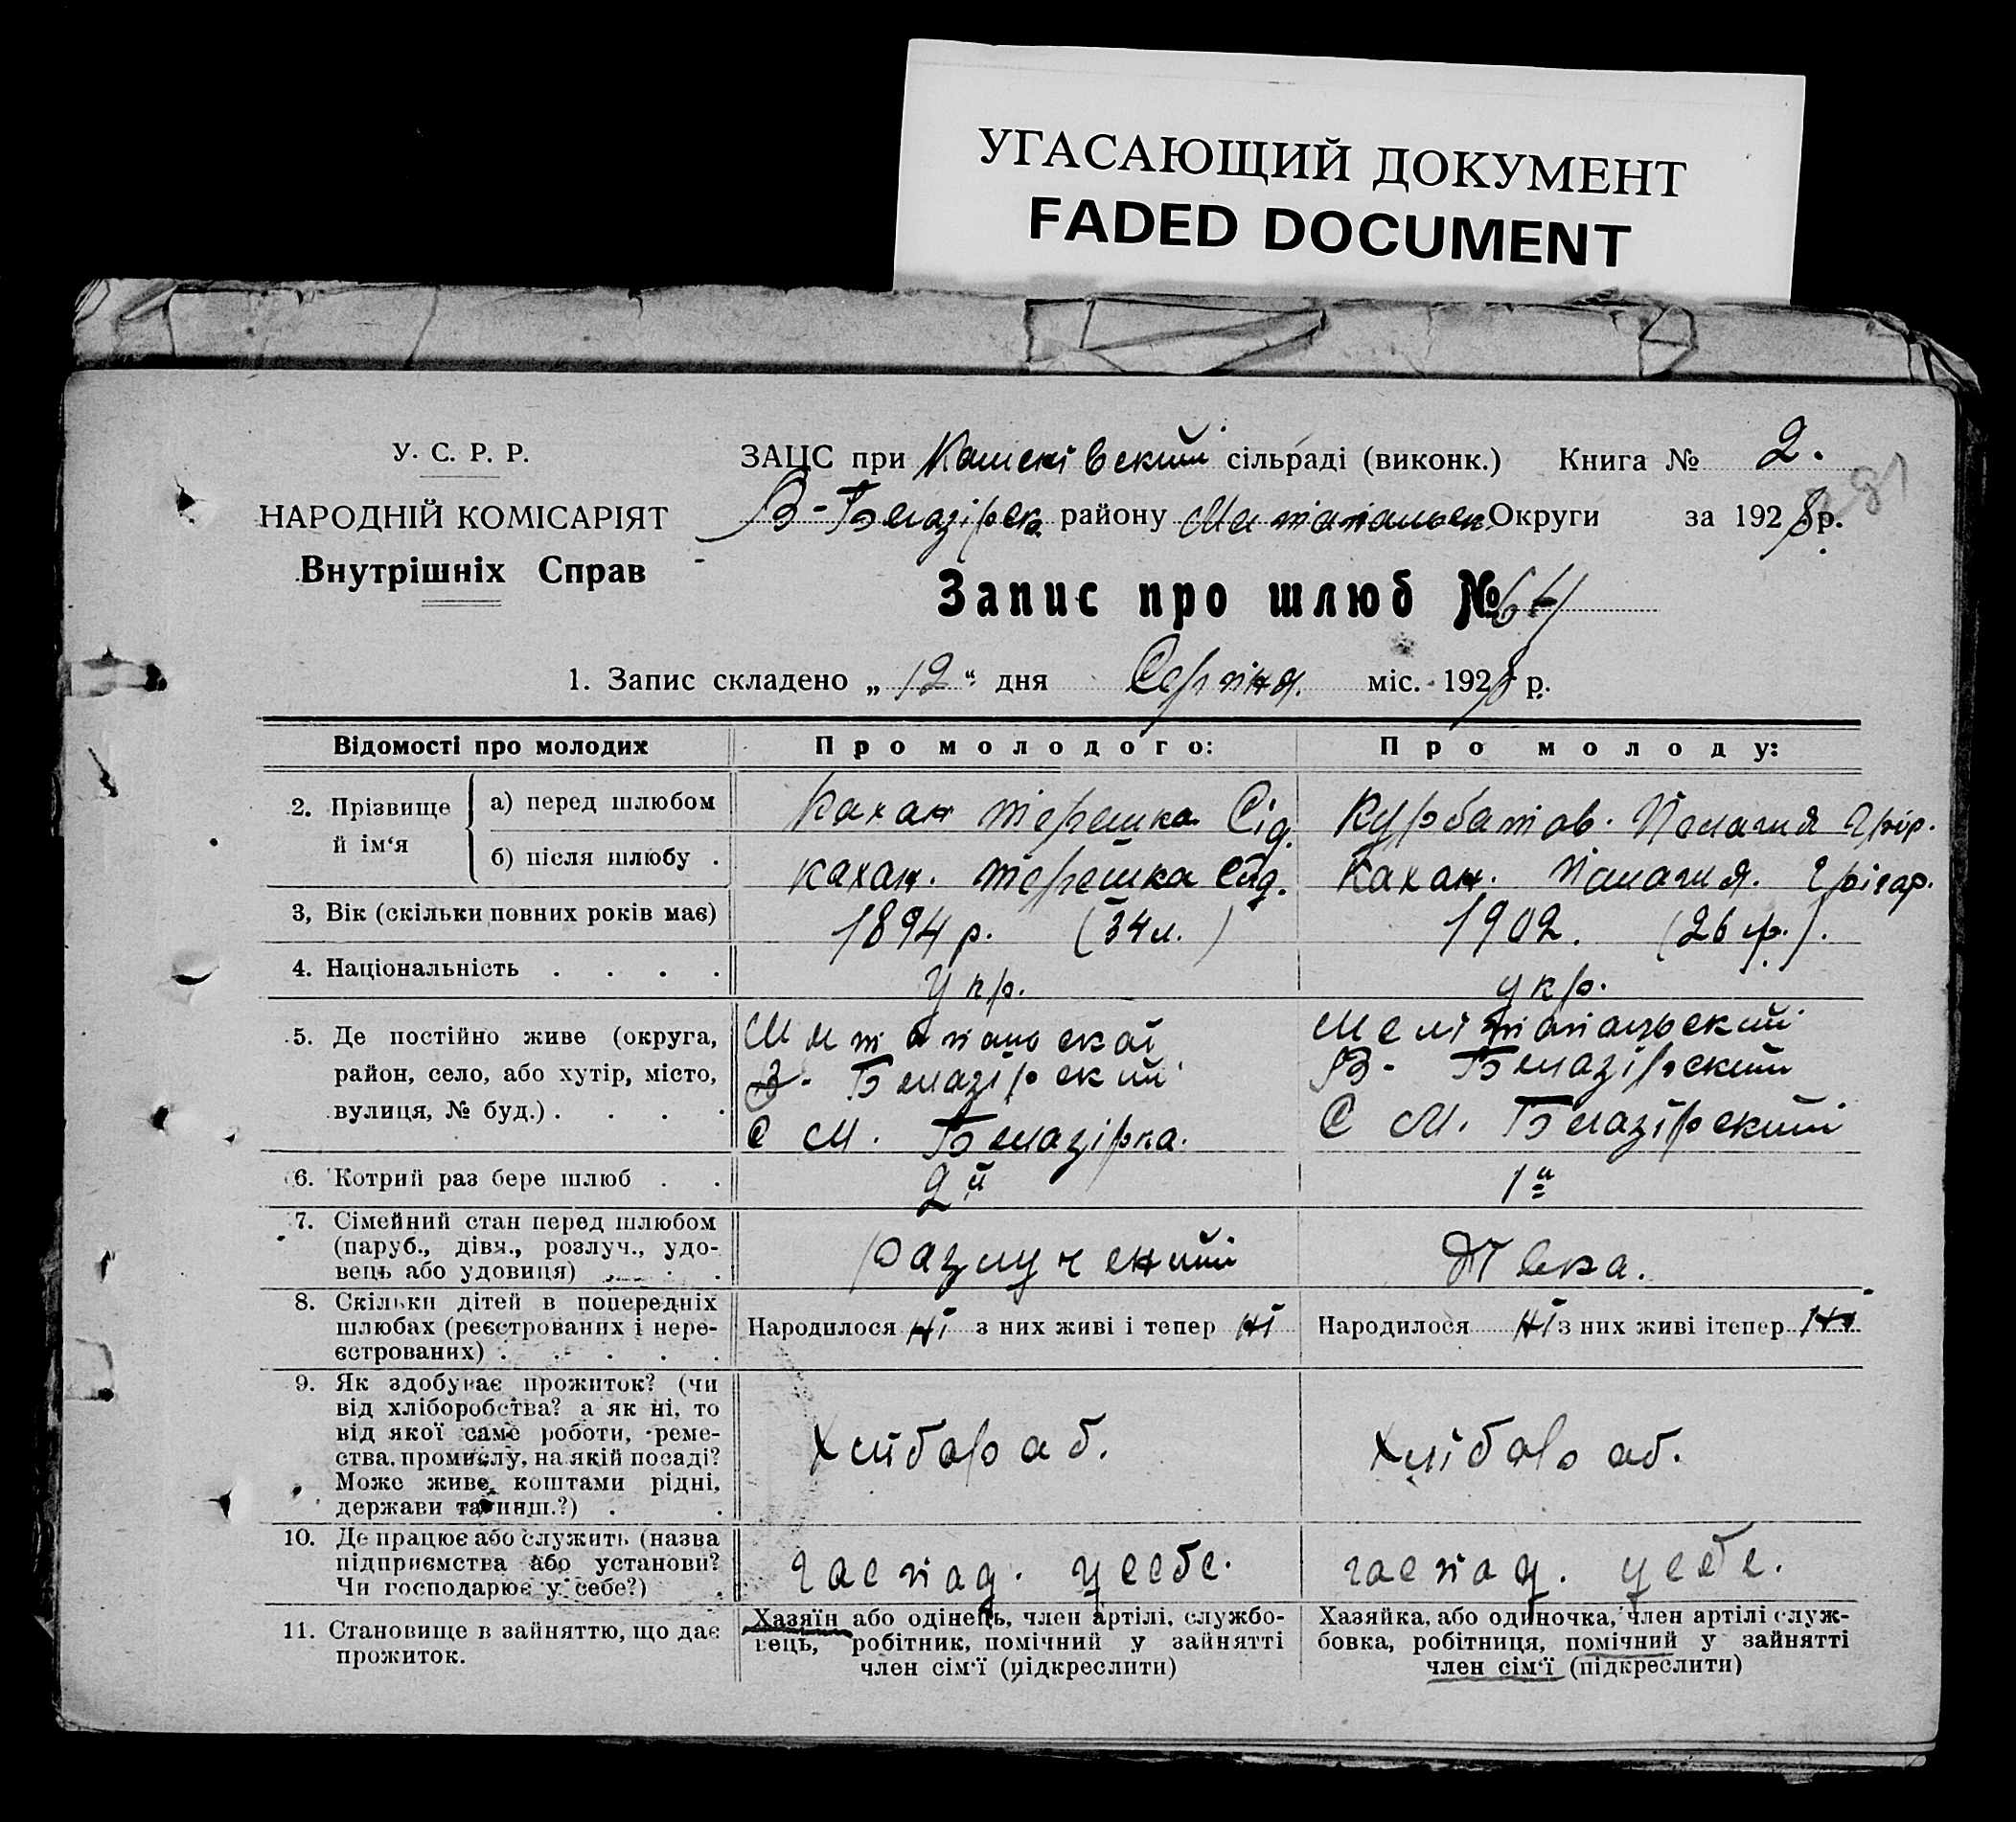 УГАСАЮЩИЙ ДОКУМЕНТ
FADED DOCUMENT
У. С. Р. Р.
НАРОДНІЙ КОМІСАРІЯТ
Внутрішніх Справ
ЗАЦС при сільраді (виконк.) Книга № 2.
В-Белазірск району Округи за 1928 р.
281
Запис про шлюб № 64
1. Запис складено „ 12 “ дня Серпня. міс. 1928 р.
Відомості про молодих
Про молодого:
Про молоду:
2. Прізвище й ім‘я
а) перед шлюбом
Кахан терешка Сід.
Курбатов. Пелагия Грір.
б) після шлюбу .
Кахан. терешка Сид.
Кахан. Палагия. Грігор.
3, Вік (скільки повних років має)
1894 р. (34 л.)
1902. (26 р.).
4. Національність . . . .
Укр.
укр.
5. Де постійно живе (округа,
район, село, або хутір, місто,
вулиця, № буд.) . . . .
В- Белазірский
С М. Белазірка.
Мелітапальский
В- Белазірский
С М. Белазірский
6. Котрий раз бере шлюб . .
2й
1й
7. Сімейний стан перед шлюбом
(паруб., дівч., розлуч., удо-
вець або удовиця) . . .
разлучений
Дівка.
8. Скільки дітей в попередніх
шлюбах (реєстрованих і нере-
єстрованих) . . . . .
Народилося ні з них живі і тепер ні
Народилося ні з них живі ітепер ні
9. Як здобуває прожиток? (чи
від хліборобства? а як ні, то
від якої саме роботи, реме-
ства, промислу, на якій посаді?
Може живе коштами рідні,
держави та инш.?) . .
Хлібараб.
Хлібароб.
10. Де працює або служить (назва
підприємства або установи?
Чи господарює у себе?) .
гаспад. усебе.
гаспад. усебе.
11. Становище в зайняттю, що дає
прожиток.
Хазяїн або одінець, член артілі, службо-
вець, робітник, помічний у зайнятті
член сім‘ї (підкреслити)
Хазяйка, або одиночка, член артілі служ-
бовка, робітниця, помічний у зайнятті
член сім‘ї (підкреслити)